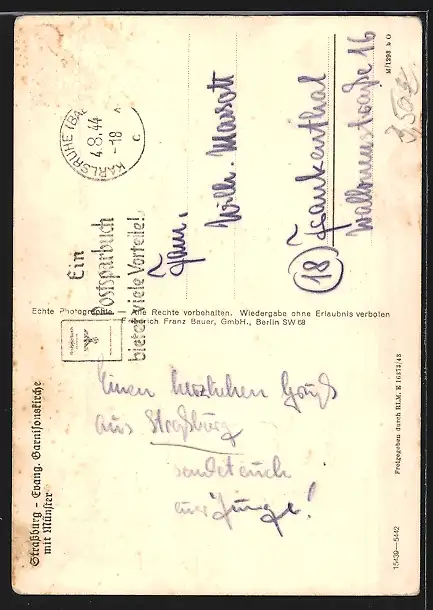 Straßburg – Evang. Garnisonskirche
mit Münster
Einen herzlichen Gruß
aus Straßburg
sendet euch
euer Junge!
15439—5442
Freigegeben durch RLM. E 16573/43
Echte Photographie — Alle Rechte vorbehalten. Wiedergabe ohne Erlaubnis verboten
Friedrich Franz Bauer, GmbH., Berlin SW 68
KARLSRUHE (BA
4.8.44
-18
c
Ein
Postsparbuch
bietet viele Vorteile!
Fam.
Wilh.
(18) Frankenthal
Wallonenstraße 16
M/1298 b O
3,50 €